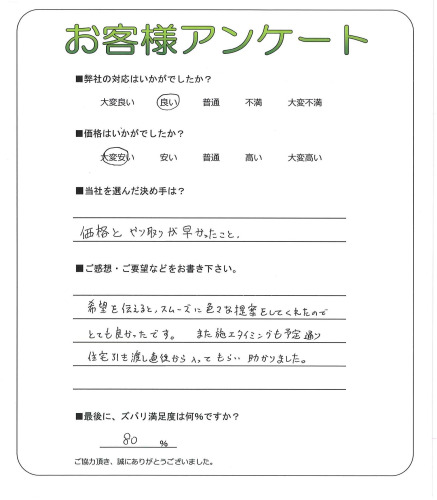 お客様アンケート
■弊社の対応はいかがでしたか？
大変良い 良い 普通 不満 大変不満
■価格はいかがでしたか？
大変安い 安い 普通 高い 大変高い
■当社を選んだ決め手は？
価格と やり取りが 早かったこと。
■ご感想・ご要望などをお書き下さい。
希望を伝えると、スムーズに色々な提案をしてくれたので
とても良かったです。 また施工タイミングも予定通り
住宅引き渡し直後から入ってもらい 助かりました。
■最後に、ズバリ満足度は何％ですか？
80 ％
ご協力頂き、誠にありがとうございました。